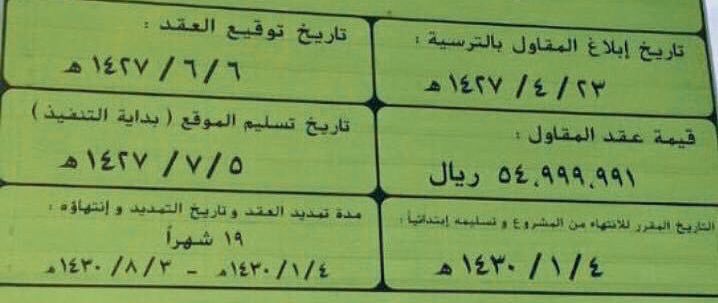 تاريخ إبلاغ المقاول بالترسية :
٢٣ / ٤ / ١٤٢٧ هـ
تاريخ توقيع العقد :
٦ / ٦ / ١٤٢٧ هـ
قيمة عقد المقاول :
٥٤,٩٩٩,٩٩١ ريال
تاريخ تسليم الموقع ( بداية التنفيذ )
٥ / ٧ / ١٤٢٧ هـ
التاريخ المقرر للانتهاء من المشروع و تسليمه إبتدائياً :
٤ / ١ / ١٤٣٠ هـ
مدة تمديد العقد و تاريخ التمديد و إنتهاؤه :
١٩ شهراً
٤ / ١ / ١٤٣٠هـ - ٣ / ٨ / ١٤٣٠هـ